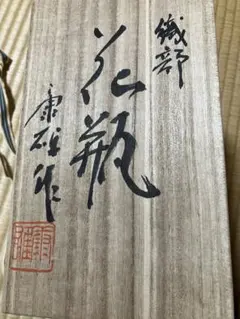 織部
花瓶
康雄作